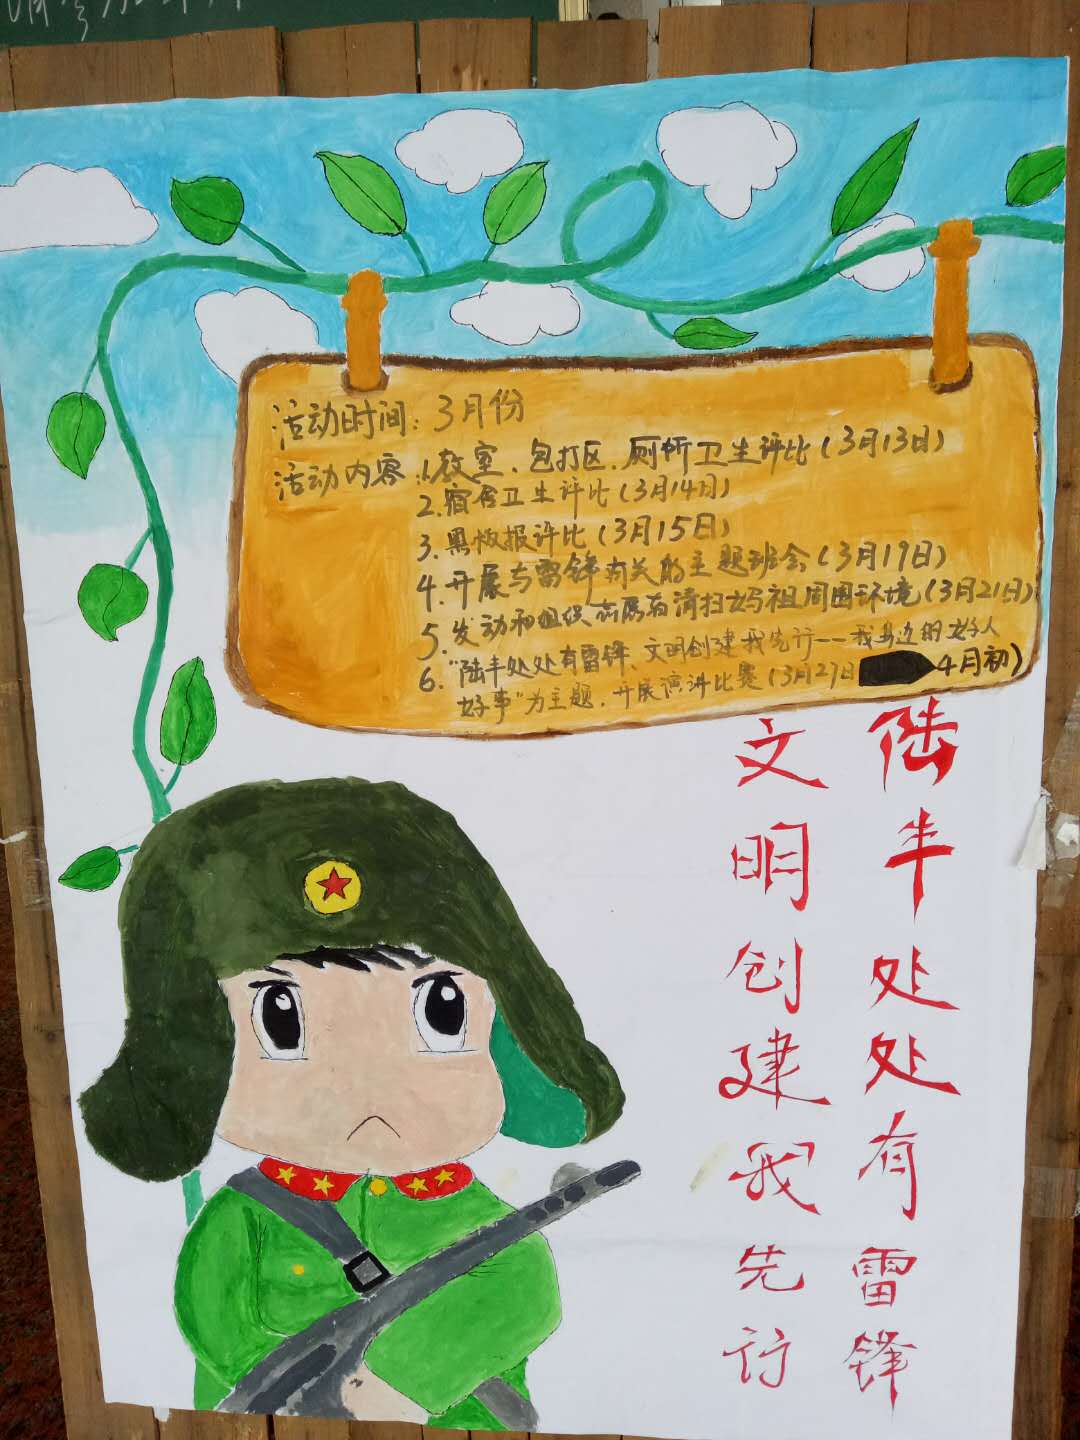 活动时间：3月份
活动内容：1.教室、包打区、厕所卫生评比(3月13日)
2.宿舍卫生评比(3月14日)
3.黑板报评比(3月15日)
4.开展与雷锋有关的主题班会(3月19日)
5.发动和组织 清扫妈祖周围环境(3月21日)
6."陆丰处处有雷锋、文明创建我先行——我身边的好人
好事"为主题，开展演讲比赛(3月27日 4月初)
陆丰处处有雷锋
文明创建我先行